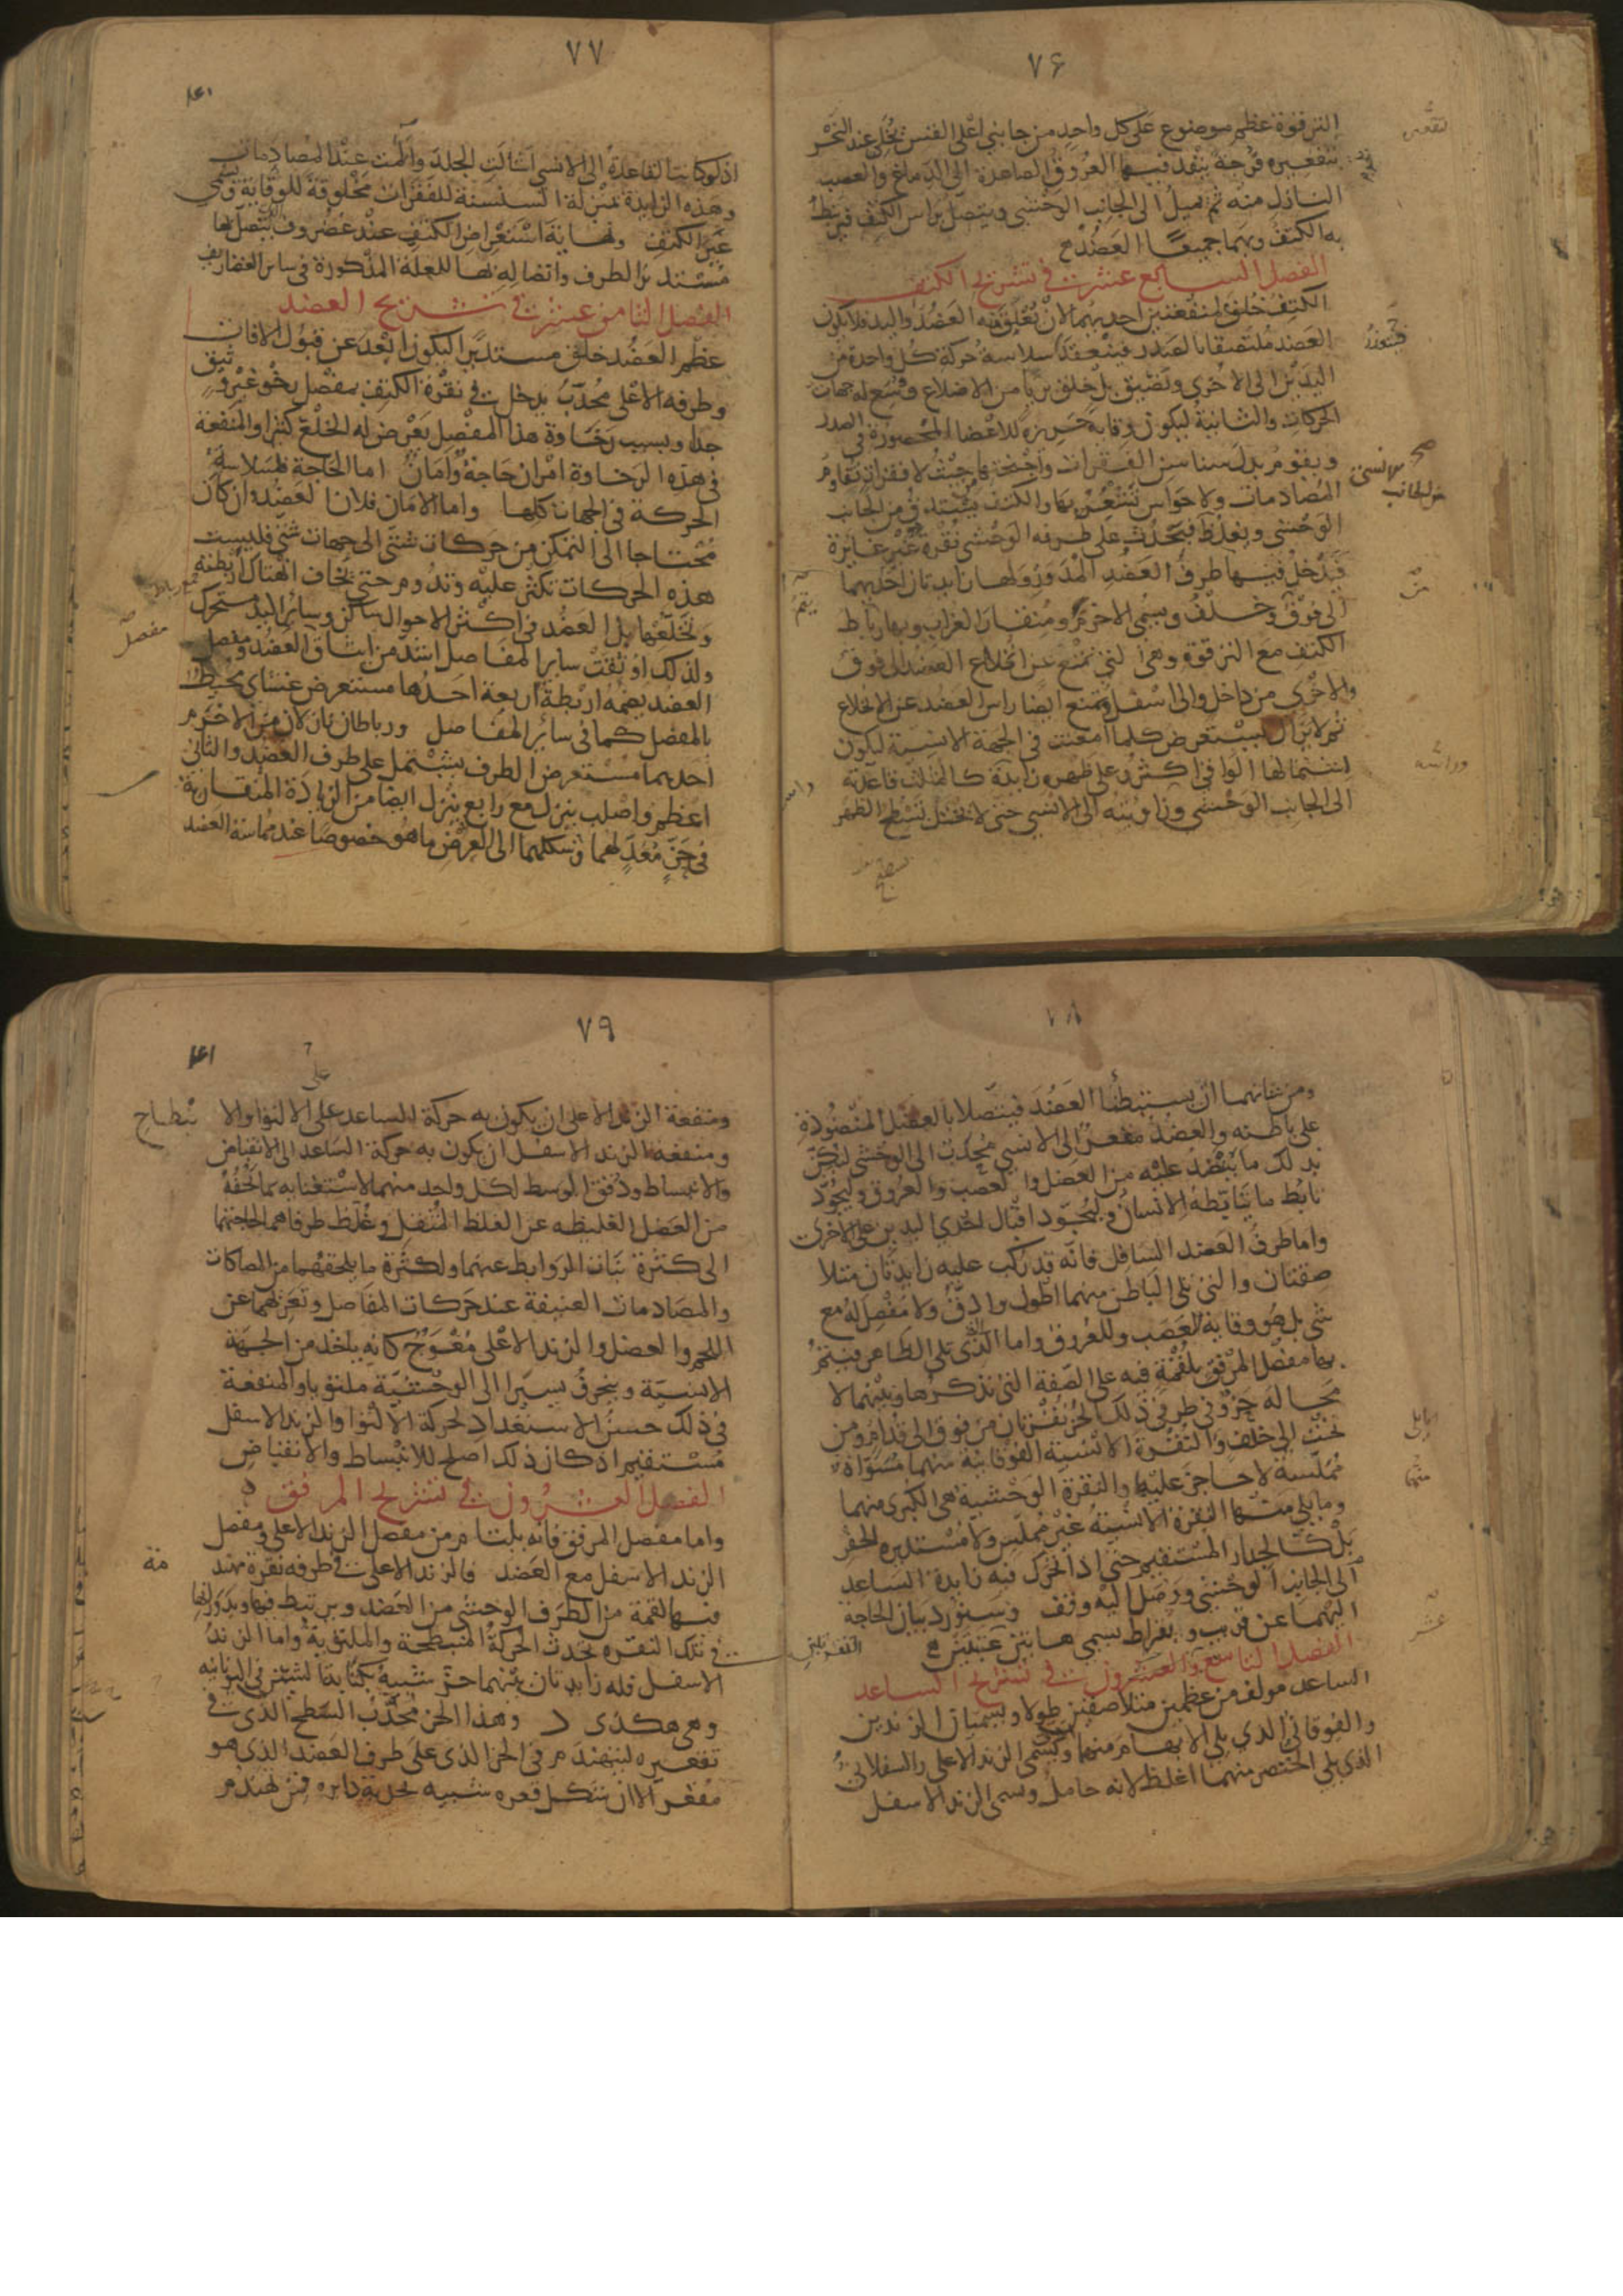 ٧۶
الترقوة عظم موضوع على كل واحد من جانبي اعلى القس تخلى عند النحر
بتقعيره فرجة ينفذ فيها العروق الصاعدة الى الدماغ والعصب
النازل منه ثم يميل الى الجانب الوحشى ويتصل براس الكتف فيرتبط
به الكتف وبهما جميعا العضد
الفصل السابع عشر في تشريح الكتف
الكتف خلق لمنفعتين احديهما لان تعلق منه العضد واليد فلا يكون
العضد ملتصقا بالصدر فينعقد سلاسة حركة كل واحدة من
اليدين الى الاخرى وتضيق بل خلق بريا من الاضلاع ووسع له جهات
الحركات والثانية ليكون وقاية حريزة للاعضا المحصورة في الصدر
ويقوم بدل سناسن الفقرات واجنحتها حيث لا فقرات تقاوم
المصادمات ولا حواس تشعر بها والكتف يستدق من الجانب
الوحشى ويغلظ فيحدث على طرفه الوحشى نقرة غير غايرة
فيدخل فيها طرف العضد المدور ولها زايدتان احديهما
الى فوق وخلف ويسمى الاخرم ومنقار الغراب وبها رباط
الكتف مع الترقوة وهى التى تمنع عن انخلاع العضد الى فوق
والاخرى من داخل والى اسفل وتمنع ايضا راس العضد عن الانخلاع
ثم لا يزال يستعرض كلما امعنت في الجهة الانسية ليكون
اشتمالها الوافى اكثر وعلى ظهره زايدة كالمثلث قاعدته
الى الجانب الوحشى وزاويته الى الانسى حتى لا يختل تسطح الظهر
٧٧
اذ لو كانت القاعدة الى الانسى لشالت الجلدة وآلمت عند المصادمات
وهذه الزايدة بمنزلة السنسنة للفقرات مخلوقة للوقاية وتسمى
عير الكتف ونهاية استعراض الكتف عند غضروف يتصل بها
مستدير الطرف واتصاله بها للعلة المذكورة في ساير الغضاريف
الفصل الثامن عشر في تشريح العضد
عظم العضد خلق مستديرا ليكون ابعد عن قبول الافات
وطرفه الاعلى محدب يدخل في نقرة الكتف بمفصل رخو غير وثيق
جدا وبسبب رخاوة هذا المفصل يعرض له الخلع كثيرا والمنفعة
في هذه الرخاوة امران حاجة وامان اما الحاجة فسلاسة
الحركة في الجهات كلها واما الامان فلان العضد وان كان
محتاجا الى التمكن من حركات شتى الى جهات شتى فليست
هذه الحركات تكثر عليه وتدوم حتى يخاف انهتاك اربطته
وتخلعها بل العضد في اكثر الاحوال ساكن وسائر اليد متحرك
ولذلك اوثقت ساير المفاصل اشد من ايثاق العضد ومفصل
العضد يضمه اربطة اربعة احدها مستعرض غشاى محيط
بالمفصل كما في سائر المفاصل ورباطان نازلان من الاخرم
احدهما مستعرض الطرف يشتمل على طرف العضد والثانى
اعظم واصلب ينزل مع رابع ينزل ايضا من الزايدة المنقارية
في حز معد لهما وشكلهما الى العرض ما هو خصوصا عند مماسة العضد
٧٨
ومن شانهما ان يستبطنا العضد فيتصلا بالعضل المنضودة
على باطنه والعضد مقعر الى الانسى محدب الى الوحشى ليكن
بذلك ما ينتضد عليه من العضل والعصب والعروق وليجود
تابط ما يتابطه الانسان وليجود اقبال احدى اليدين على الاخرى
واما طرف العضد السافل فانه قد ركب عليه زايدتان متلا
صقتان والتى تلى الباطن منهما اطول وادق ولا مفصل له مع
شى بل هو وقاية للعصب وللعروق واما التى تلى الظاهر فيتم
بها مفصل المرفق بلقمة فيه على الصفة التى نذكرها وبينهما لا
محالة حز وفي طرفي ذلك الحز نقرتان من فوق الى قدام ومن
تحت الى خلف والنقرة الانسية الفوقانية منهما مسواة
مملسة لا حاجز عليها والنقرة الوحشية هى الكبرى منهما
وما يلى منها النقرة الانسية غير مملس ولا مستدير الحفر
بل كالجدار المستقيم حتى اذا تحرك فيه زايدة الساعد
الى الجانب الوحشى ووصل اليه وقف وسنورد بيان الحاجة
اليهما عن قريب وبقراط يسمى هاتين عتبتين
الفصل التاسع والعشرون في تشريح الساعد
الساعد مولف من عظمين متلاصقين طولا ويسميان الزندين
والفوقانى الذي يلى الابهام منهما ويسمى الزند الاعلى والسفلانى
الذى يلى الخنصر منهما اغلظ لانه حامل وسمى الزند الاسفل
٧٩
ومنفعة الزند الاعلى ان يكون به حركة الساعد على الالتوا والا
نبطاح
ومنفعة الزند الاسفل ان يكون به حركة الساعد الى الانقباض
والانبساط ودقق الوسط لكل واحد منهما لاستغنايه بما يحفه
من العضل الغليظه عن الغلظ المثقل وغلظ طرفاهما لحاجتهما
الى كثرة نبات الروابط عنهما ولكثرة ما يلحقهما من المصاكات
والمصادمات العنيفة عند حركات المفاصل وتعريهما عن
اللحم والعضل والزند الاعلى معوج كانه ياخذ من الجهة
الانسية وينحرف يسيرا الى الوحشية ملتويا والمنفعة
في ذلك حسن الاستعداد لحركة الالتوا والزند الاسفل
مستقيم اذ كان ذلك اصلح للانبساط والانقباض
الفصل العشرون في تشريح المرفق
واما مفصل المرفق فانه يلتام من مفصل الزند الاعلى ومفصل
الزند الاسفل مع العضد فالزند الاعلى في طرفه نقرة مهند
مة
فيها لقمة من الطرف الوحشى من العضد ويرتبط فيها وبدورانها
في تلك النقره تحدث الحركة المنبطحة والملتوية واما الزند
الاسفل فله زايدتان بينهما حز شبيه بكتابة السين في اليونانيه
وهى هكذى
وهذا الحز محدب السطح الذى في
تقعيره ليتهندم في الحز الذى على طرف العضد الذى هو
مقعر الا ان شكل قعره شبيه بحدبة دايره فمن تهندم